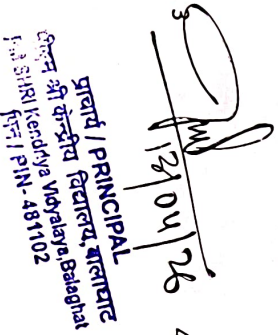 13/04/26
प्राचार्य / PRINCIPAL
पीएम श्री केन्द्रीय विद्यालय, बालाघाट
PM SHRI Kendriya Vidyalaya, Balaghat
पिन / PIN - 481102